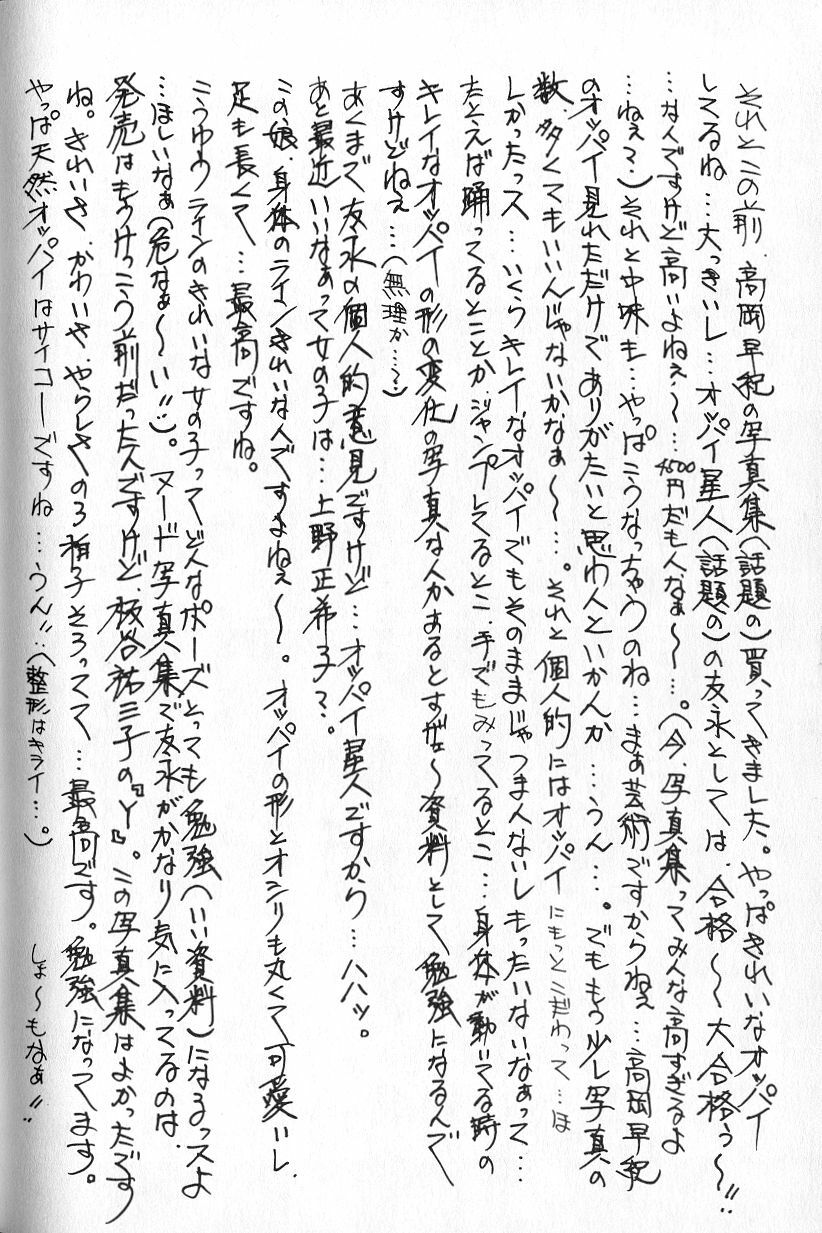 それとこの前、高岡早紀の写真集(話題の)買ってきました。やっぱきれいなオッパイ
してるね…大っきいし…オッパイ星人(話題の)の友永としては、合格〜〜大合格ぅ〜〜!!
…なんですけど高いよねぇ〜〜…4500円だもんなぁ〜〜…。(今、写真集ってみんな高すぎるよ
…ねぇ?)それと中味も…やっぱこうなっちゃうのね…まぁ芸術ですからねぇ…高岡早紀
のオッパイ見れただけでありがたいと思わんといかんか…うん…。でももう少し写真の
数、多くてもいいんじゃないかなぁ〜〜…。それと個人的にはオッパイにもっとこだわって…ほ
しかったっス…いくらキレイなオッパイでもそのままじゃつまんないしもったいないなぁって…
たとえば踊ってるとことか、ジャンプしてるとこ、手でもみってるとこ…身体が動いてる時の
キレイなオッパイの形の変化の写真なんかあるとすげェ〜資料として勉強になるんで
すけどねぇ…(無理か…?)
あくまで友永の個人的意見ですけど…オッパイ星人ですから…ハハッ。
あと最近いいなぁって女の子は…上野正希子?。
この娘、身体のラインきれいなんですよねぇ〜〜。オッパイの形とオシリも丸くて可愛いし、
足も長くて…最高ですね。
こうゆうラインのきれいな女の子ってどんなポーズとっても勉強(いい資料)になるっスよ
…ほしいなぁ(危なぁ〜〜い!!)。ヌード写真集で友永がかなり気に入ってるのは、
発売はもうけっこう前だったんですけど、板谷祐三子の『Y』。この写真集はよかったです
ね。きれいさ、かわいさ、やらしさの3拍子そろってて…最高です。勉強になってます。
やっぱ天然オッパイはサイコーですね…うん!!(整形はキライ…。)しょ〜もなぁ!!